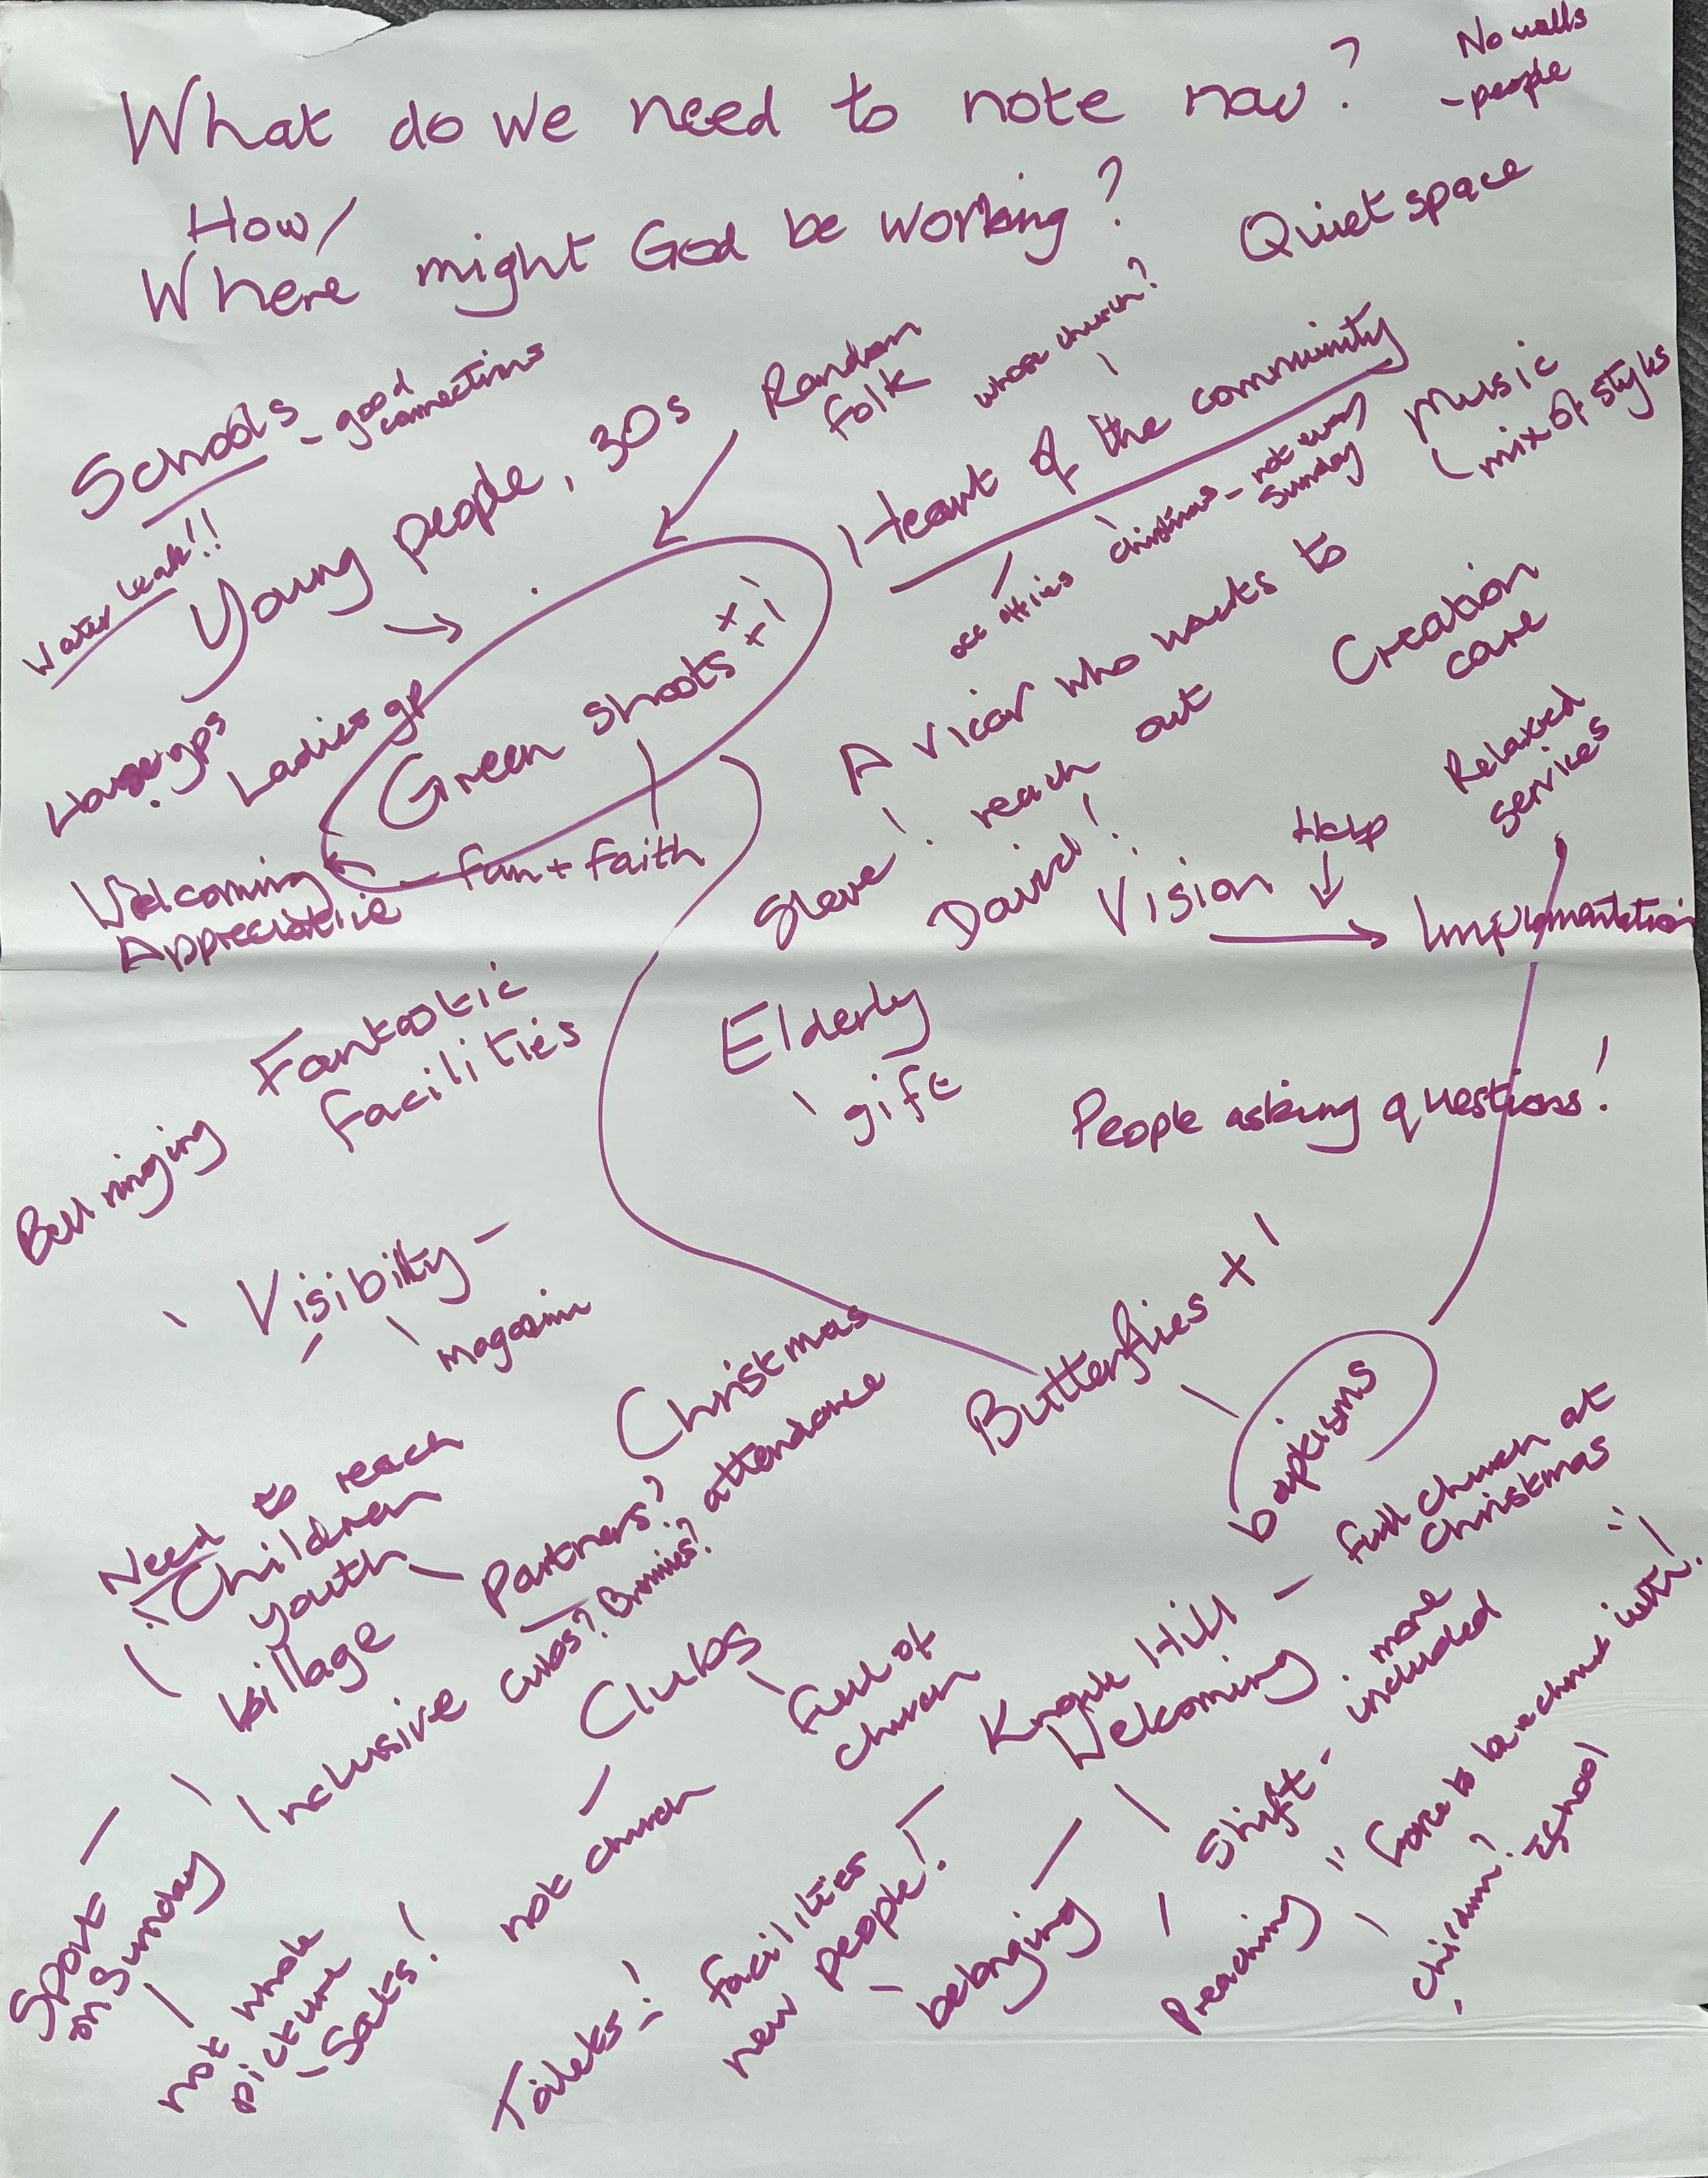 What do we need to note now?
No walls
- people
How/
Where might God be working?
Quiet space
Schools
- good
connections
Young people, 30s
Random
folk
whose church?
Heart of the community
Music
mix of styles
Water leak!!
occ
Christmas - not every
Sunday
Green shoots ++!
fun + faith
House gps
Ladies gp
A vicar who wants to
reach out
Creation
care
Relaxed
services
Welcoming
Appreciative
Steve!
David!
Vision
Help
Implementation
Fantastic
facilities
Elderly
gift
People asking questions!
Bell ringing
Visibilty -
magazine
Christmas
attendance
Butterflies + !
baptisms
Need to reach
Children
youth
village
Partners?
Cubs? Brownies?
Inclusive
Clubs
full of
church
not church
Knowle Hill - full church at
Christmas
Welcoming
more
included
Shift -
belonging
Sport
on Sunday
not whole
picture
- Sats!
Toilets!
facilities
new people!
Preaching
school